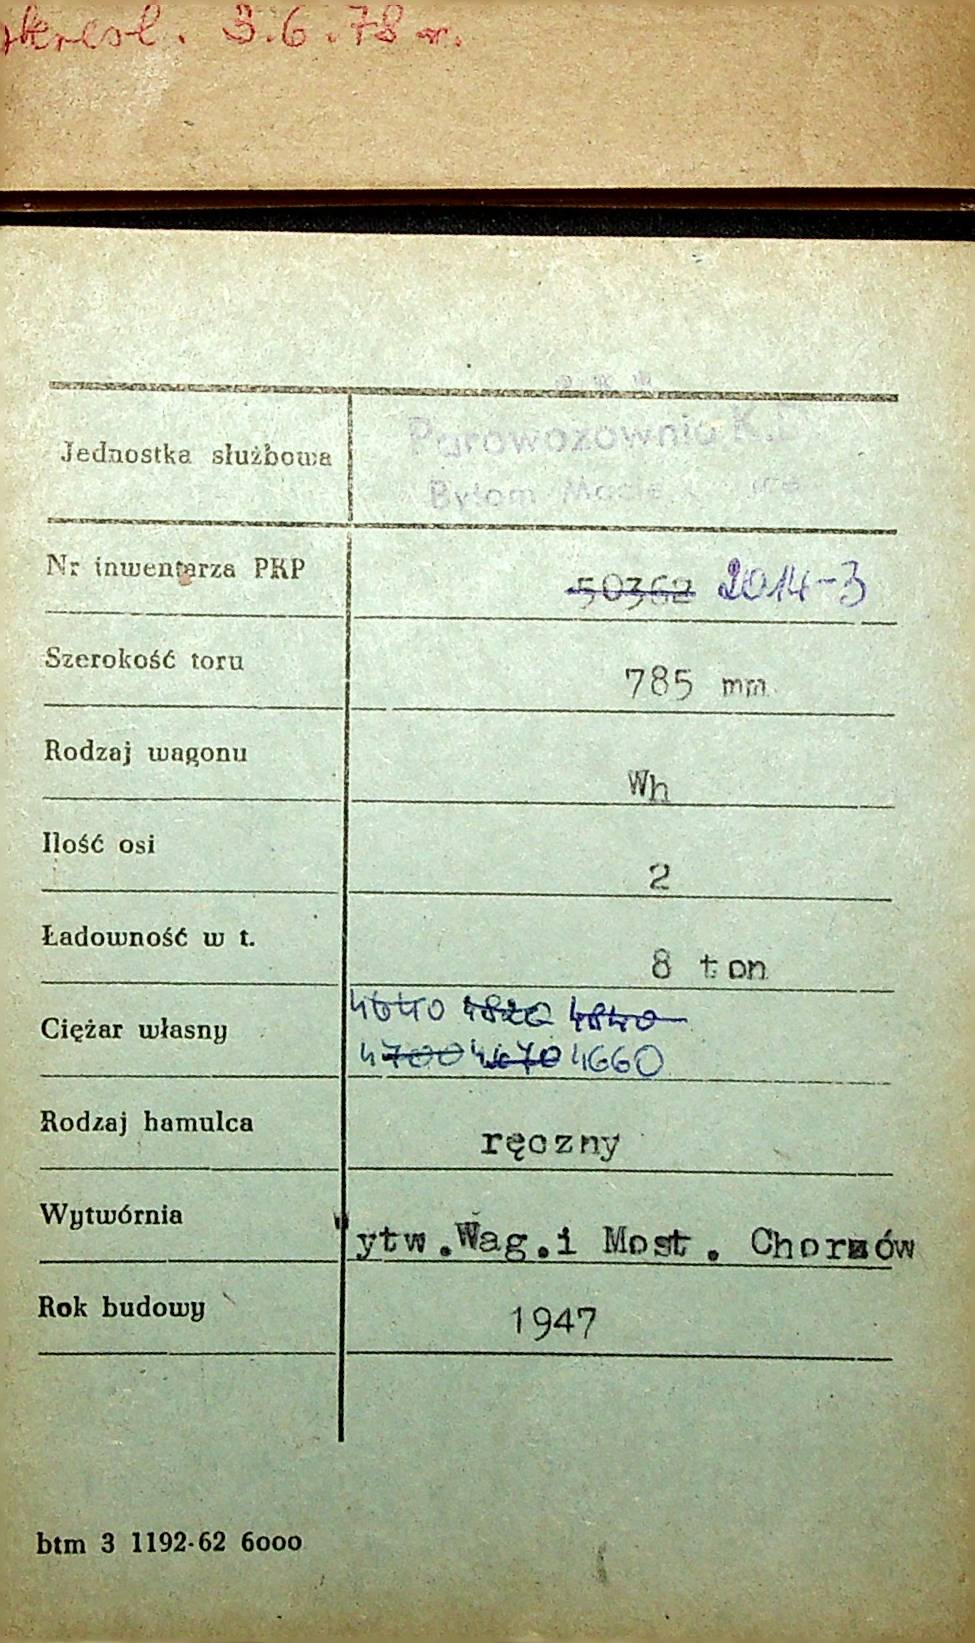 skreśl. 3.6.78 r.
P K P
Jednostka służbowa
Parowozownia K.D.
Bytom
Nr inwentarza PKP
50362 2014-3
Szerokość toru
785 mm
Rodzaj wagonu
Wh
Ilość osi
2
Ładowność w t.
8 ton
Ciężar własny
4640 4820 4840
4700 4670 4660
Rodzaj hamulca
ręczny
Wytwórnia
Wytw.Wag.i Most. Chorzów
Rok budowy
1947
btm 3 1192-62 6000